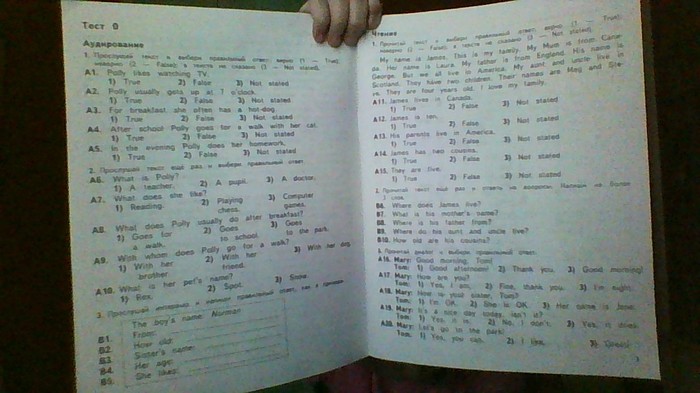 Тест 9
Аудирование
1. Прослушай текст и выбери правильный ответ: верно (1 — True),
неверно (2 — False), в тексте не сказано (3 — Not stated).
A1. Polly likes watching TV.
1) True 2) False 3) Not stated
A2. Polly usually gets up at 7 o'clock.
1) True 2) False 3) Not stated
A3. For breakfast she often has a hot-dog.
1) True 2) False 3) Not stated
A4. After school Polly goes for a walk with her cat.
1) True 2) False 3) Not stated
A5. In the evening Polly does her homework.
1) True 2) False 3) Not stated
2. Прослушай текст ещё раз и выбери правильный ответ.
A6. What is Polly?
1) A teacher. 2) A pupil. 3) A doctor.
A7. What does she like?
1) Reading. 2) Playing 3) Computer
chess. games.
A8. What does Polly usually do after breakfast?
1) Goes for 2) Goes 3) Goes
a walk. to school. to the park.
A9. With whom does Polly go for a walk?
1) With her 2) With her 3) With her dog.
brother. friend.
A10. What is her pet's name?
1) Rex. 2) Spot. 3) Snow.
3. Прослушай интервью и напиши правильный ответ, как в
The boy's name: Norman
B1. From:
B2. How old:
B3. Sister's name:
B4. Her age:
B5. She likes:
Чтение
1. Прочитай текст и выбери правильный ответ: верно (1 — True),
неверно (2 — False), в тексте не сказано (3 — Not stated).
My name is James. This is my family. My Mum is from Cana-
da. Her name is Laura. My father is from England. His name is
George. But we all live in America. My aunt and uncle live in
Scotland. They have two children. Their names are Meg and Ste-
ve. They are four years old. I love my family.
A11. James lives in Canada.
1) True 2) False 3) Not stated
A12. James is ten.
1) True 2) False 3) Not stated
A13. His parents live in America.
1) True 2) False 3) Not stated
A14. James has two cousins.
1) True 2) False 3) Not stated
A15. They are five.
1) True 2) False 3) Not stated
2. Прочитай текст ещё раз и ответь на вопросы. Напиши не более
3 слов.
B6. Where does James live?
B7. What is his mother's name?
B8. Where is his father from?
B9. Where do his aunt and uncle live?
B10. How old are his cousins?
3. Прочитай диалог и выбери правильный ответ.
A16. Mary: Good morning, Tom!
Tom: 1) Good afternoon! 2) Thank you. 3) Good morning!
A17. Mary: How are you?
Tom: 1) Yes, I am. 2) Fine, thank you. 3) I'm eight.
A18. Mary: How is your sister, Tom?
Tom: 1) I'm OK. 2) She is OK. 3) Her name is Jane.
A19. Mary: It's a nice day today, isn't it?
Tom: 1) Yes, it is. 2) No, I don't. 3) Yes, it does.
A20. Mary: Let's go to the park!
Tom: 1) Yes, you can. 2) I like. 3) Great!